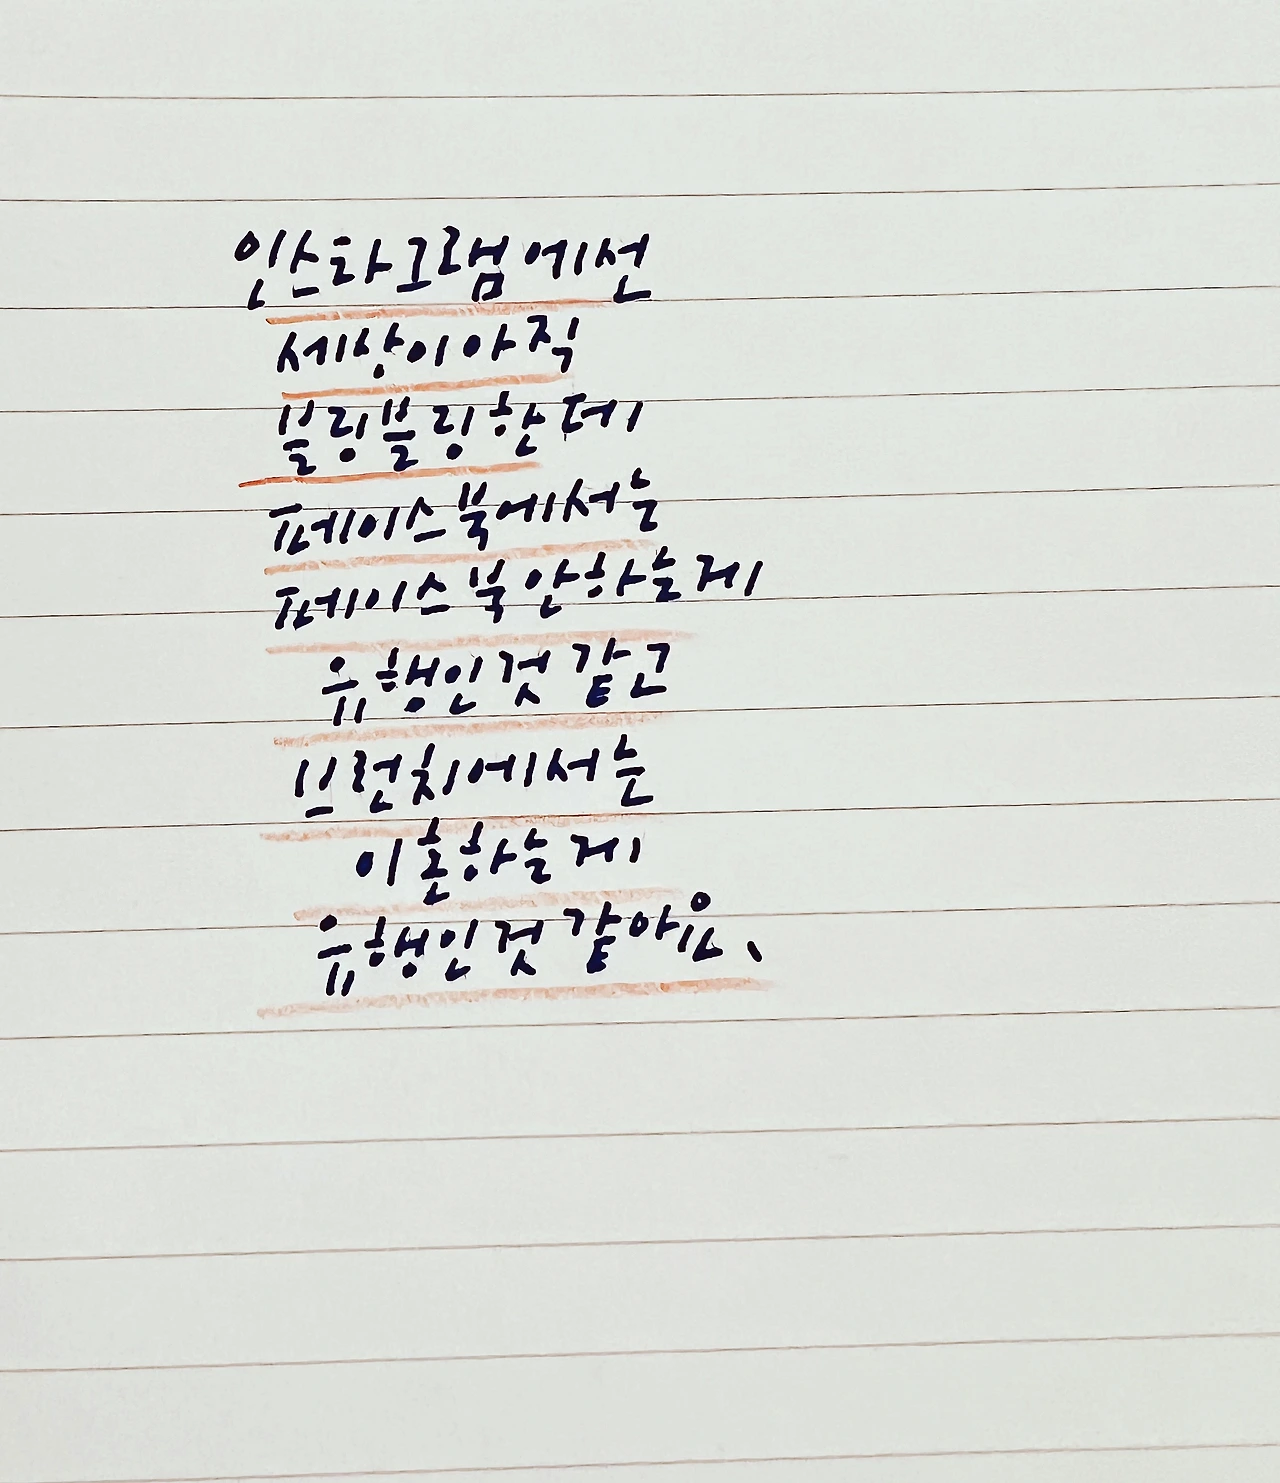 인스타그램에선
세상이 아직
블링블링한데
페이스북에서는
페이스북 안하는게
유행인것 같고
브런치에서는
이혼하는게
유행인것 같아요.